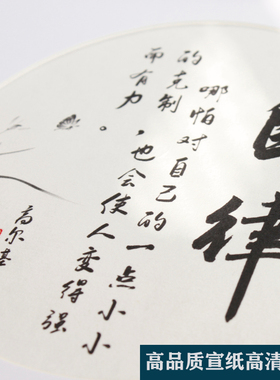 自律
哪怕对自己的一点小小
的克制，也会使人变得强
而有力。
高尔基
高品质宣纸高清